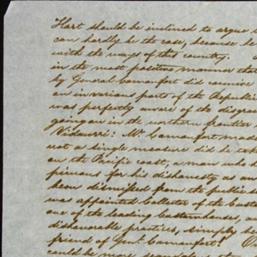 Hart should be inclined to argue
can hardly be the case, because he
with the ways of this country.
in the most positive manner that
by General Comonfort did receive
on various parts of the Republic
was perfectly aware of the
going on in the northern frontier
Vidaurri: Mr Comonfort
not a single measure did he
on the Pacific coast, a man who
for his dishonesty as
been dismissed from the public
was appointed Collector of the
one of the leading Customhouses,
dishonorable practices, simply
friend of Genl. Comonfort!
could be more scandalous